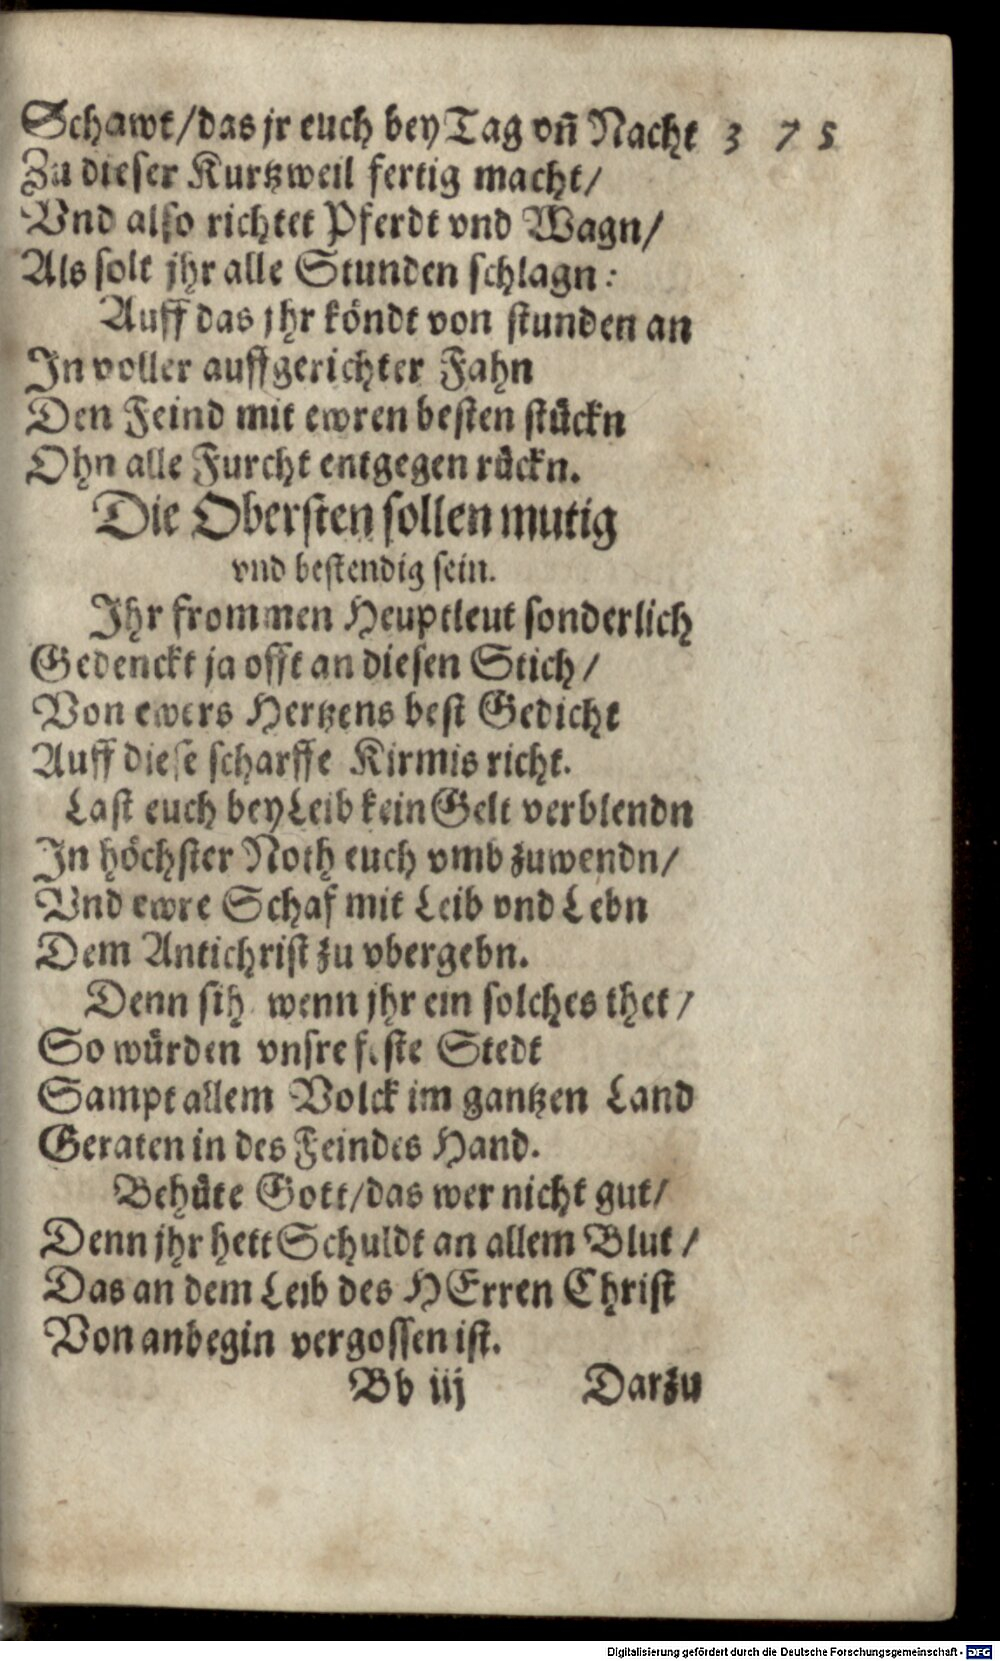 Schawt/das jr euch bey Tag vn̄ Nacht 3 7 5
Zu dieser Kurtzweil fertig macht/
Vnd also richtet Pferdt vnd Wagn/
Als solt jhr alle Stunden schlagn:
Auff das jhr köndt von stunden an
In voller auffgerichter Fahn
Den Feind mit ewren besten stückn
Ohn alle Furcht entgegen rückn.
Die Obersten sollen mutig
vnd bestendig sein.
Ihr frommen Heuptleut sonderlich
Gedenckt ja offt an diesen Stich/
Von ewers Hertzens best Gedicht
Auff diese scharffe Kirmis richt.
Last euch bey Leib kein Gelt verblendn
In höchster Noth euch vmb zuwendn/
Vnd ewre Schaf mit Leib vnd Lebn
Dem Antichrist zu vbergebn.
Denn sih wenn jhr ein solches thet/
So würden vnsre feste Stedt
Sampt allem Volck im gantzen Land
Geraten in des Feindes Hand.
Behüte Gott/das wer nicht gut/
Denn jhr hett Schuldt an allem Blut/
Das an dem Leib des HErren Christ
Von anbegin vergossen ist.
Bb iij Darzu
Digitalisierung gefördert durch die Deutsche Forschungsgemeinschaft - DFG